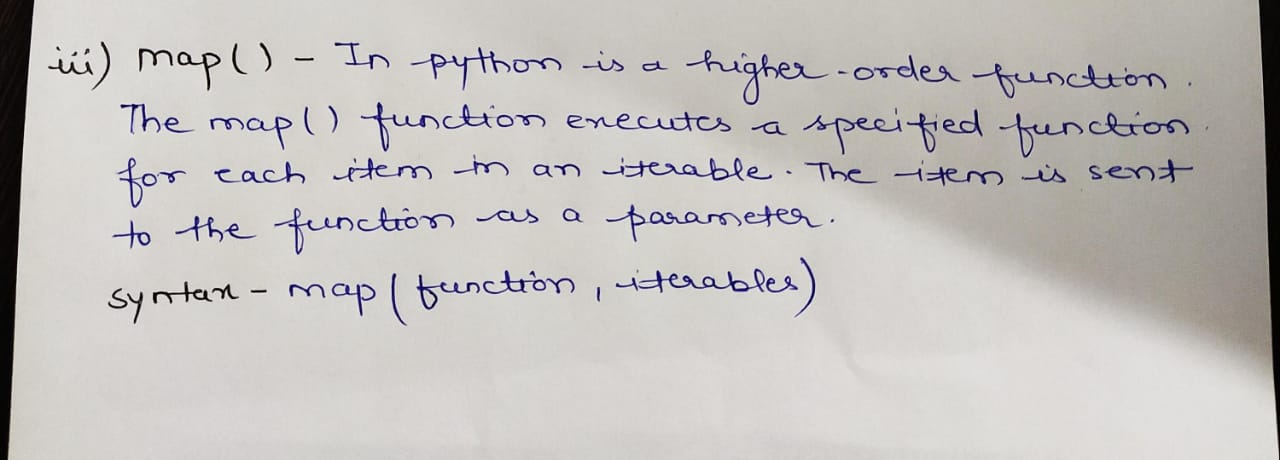 iii) map() - In python is a higher-order function.
The map() function executes a specified function.
for each item in an iterable. The item is sent
to the function as a parameter.
syntax - map(function, iterables)